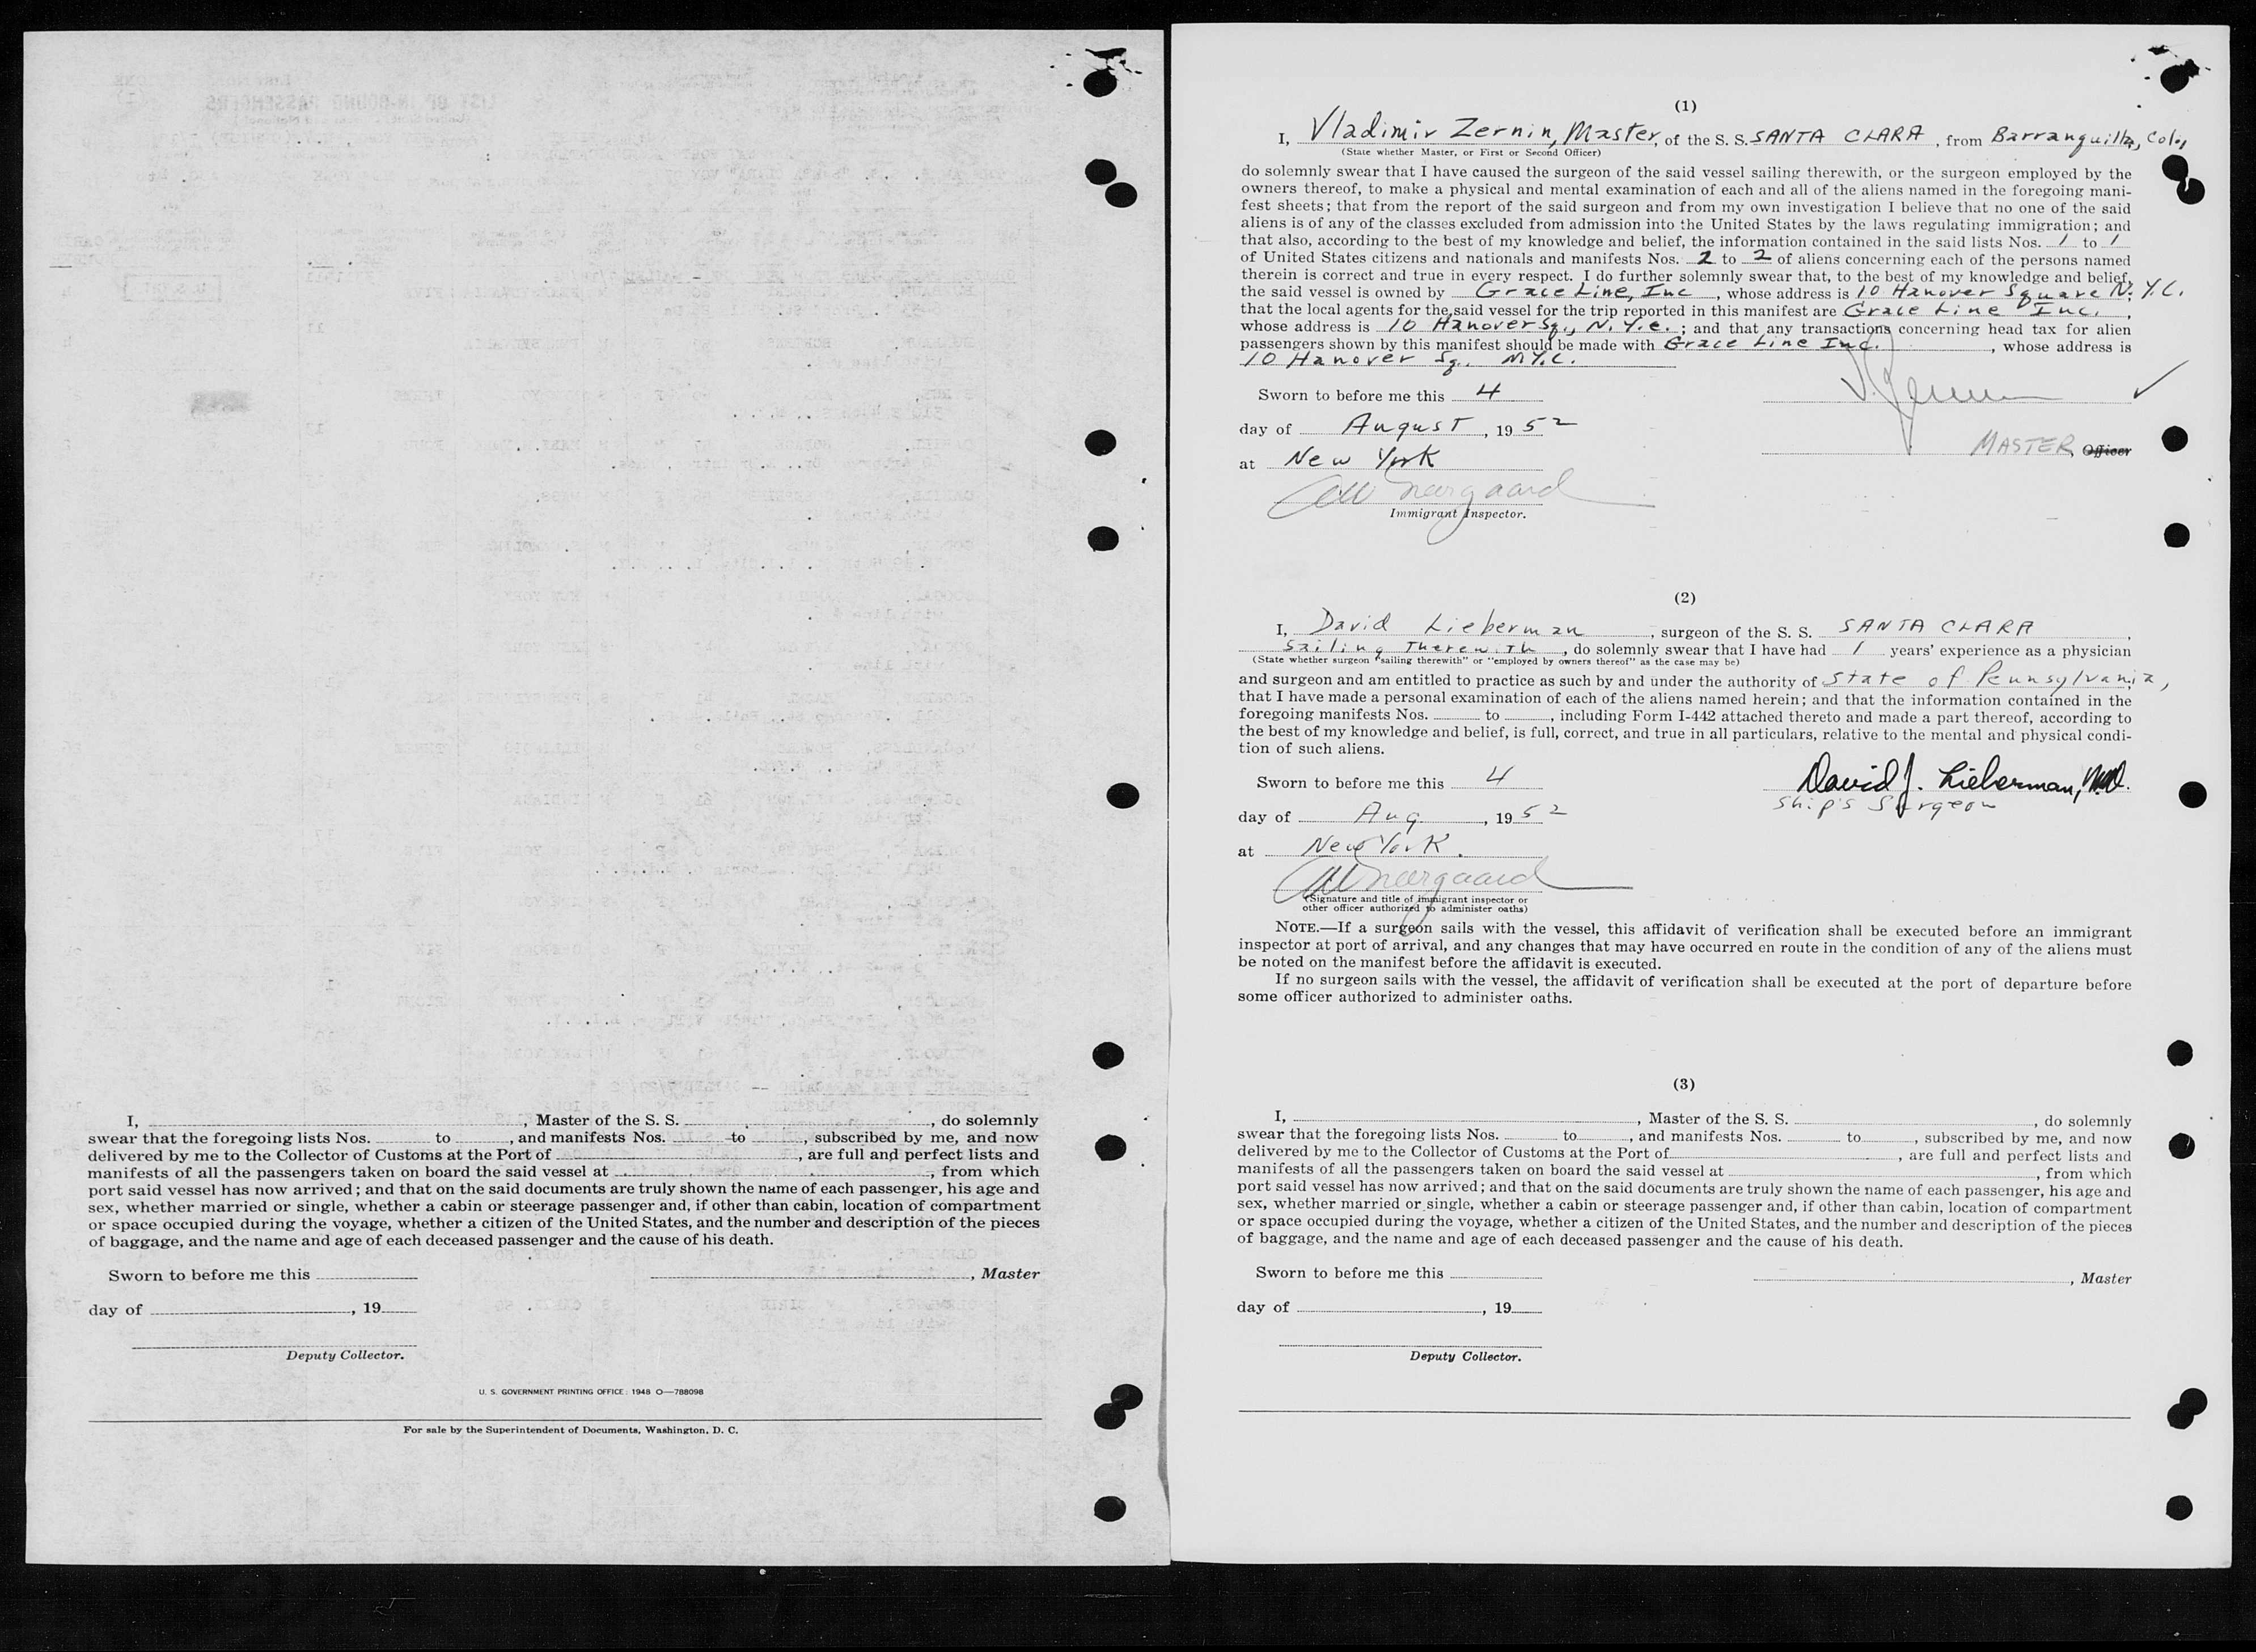 I, , Master of the S. S. , do solemnly
swear that the foregoing lists Nos. to , and manifests Nos. to , subscribed by me, and now
delivered by me to the Collector of Customs at the Port of , are full and perfect lists and
manifests of all the passengers taken on board the said vessel at , from which
port said vessel has now arrived; and that on the said documents are truly shown the name of each passenger, his age and
sex, whether married or single, whether a cabin or steerage passenger and, if other than cabin, location of compartment
or space occupied during the voyage, whether a citizen of the United States, and the number and description of the pieces
of baggage, and the name and age of each deceased passenger and the cause of his death.
Sworn to before me this
, Master
day of , 19
Deputy Collector.
U. S. GOVERNMENT PRINTING OFFICE: 1948 O—788098
For sale by the Superintendent of Documents, Washington, D. C.
(1)
I, Vladimir Zernin, Master, of the S. S. SANTA CLARA, from Barranquilla, Col.,
(State whether Master, or First or Second Officer)
do solemnly swear that I have caused the surgeon of the said vessel sailing therewith, or the surgeon employed by the
owners thereof, to make a physical and mental examination of each and all of the aliens named in the foregoing mani-
fest sheets; that from the report of the said surgeon and from my own investigation I believe that no one of the said
aliens is of any of the classes excluded from admission into the United States by the laws regulating immigration; and
that also, according to the best of my knowledge and belief, the information contained in the said lists Nos. 1 to 1
of United States citizens and nationals and manifests Nos. 2 to 2 of aliens concerning each of the persons named
therein is correct and true in every respect. I do further solemnly swear that, to the best of my knowledge and belief,
the said vessel is owned by Grace Line, Inc, whose address is 10 Hanover Square N.Y.C.;
that the local agents for the said vessel for the trip reported in this manifest are Grace Line Inc.,
whose address is 10 Hanover Sq., N.Y.C.; and that any transactions concerning head tax for alien
passengers shown by this manifest should be made with Grace Line Inc., whose address is
10 Hanover Sq. N.Y.C.
Sworn to before me this 4
day of August, 1952
MASTER, Officer
at New York
Immigrant Inspector.
(2)
I, David Lieberman, surgeon of the S. S. SANTA CLARA,
Sailing Therewith, do solemnly swear that I have had 1 years' experience as a physician
(State whether surgeon "sailing therewith" or "employed by owners thereof" as the case may be)
and surgeon and am entitled to practice as such by and under the authority of State of Pennsylvania,
that I have made a personal examination of each of the aliens named herein; and that the information contained in the
foregoing manifests Nos. to , including Form I-442 attached thereto and made a part thereof, according to
the best of my knowledge and belief, is full, correct, and true in all particulars, relative to the mental and physical condi-
tion of such aliens.
Sworn to before me this 4
David J. Lieberman, M.D.
Ship's Surgeon
day of Aug, 1952
at New York.
(Signature and title of immigrant inspector or
other officer authorized to administer oaths)
NOTE.—If a surgeon sails with the vessel, this affidavit of verification shall be executed before an immigrant
inspector at port of arrival, and any changes that may have occurred en route in the condition of any of the aliens must
be noted on the manifest before the affidavit is executed.
If no surgeon sails with the vessel, the affidavit of verification shall be executed at the port of departure before
some officer authorized to administer oaths.
(3)
I, , Master of the S. S. , do solemnly
swear that the foregoing lists Nos. to , and manifests Nos. to , subscribed by me, and now
delivered by me to the Collector of Customs at the Port of , are full and perfect lists and
manifests of all the passengers taken on board the said vessel at , from which
port said vessel has now arrived; and that on the said documents are truly shown the name of each passenger, his age and
sex, whether married or single, whether a cabin or steerage passenger and, if other than cabin, location of compartment
or space occupied during the voyage, whether a citizen of the United States, and the number and description of the pieces
of baggage, and the name and age of each deceased passenger and the cause of his death.
Sworn to before me this
, Master
day of , 19
Deputy Collector.